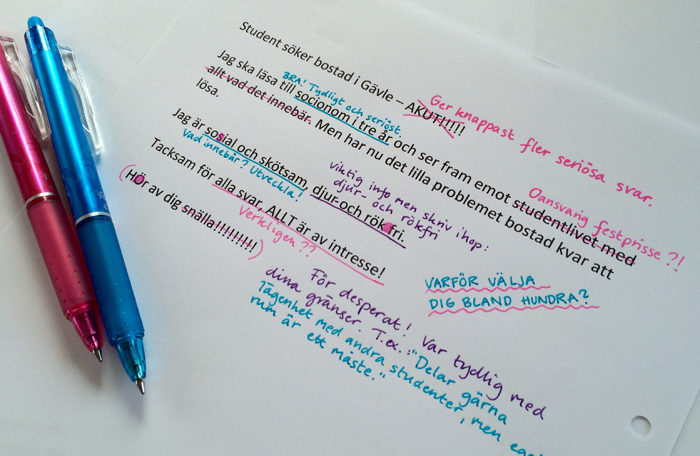 Student söker bostad i Gävle – AKUT!!!!!
Ger knappast fler seriösa svar.
BRA! Tydligt och seriöst.
Jag ska läsa till socionom i tre år och ser fram emot studentlivet med
allt vad det innebär. Men har nu det lilla problemet bostad kvar att
lösa.
Oansvarig festprisse?!
Jag är sosial och skötsam, djur och rök fri.
Vad innebär? Utveckla!
viktig info men skriv ihop:
djur- och rökfri
Tacksam för alla svar. ALLT är av intresse!
Verkligen??
(Hör av dig snälla!!!!!!!!!)
VARFÖR VÄLJA
DIG BLAND HUNDRA?
För desperat! Var tydlig med
dina gränser. T.ex.: "Delar gärna
lägenhet med andra studenter, men
rum är ett måste."